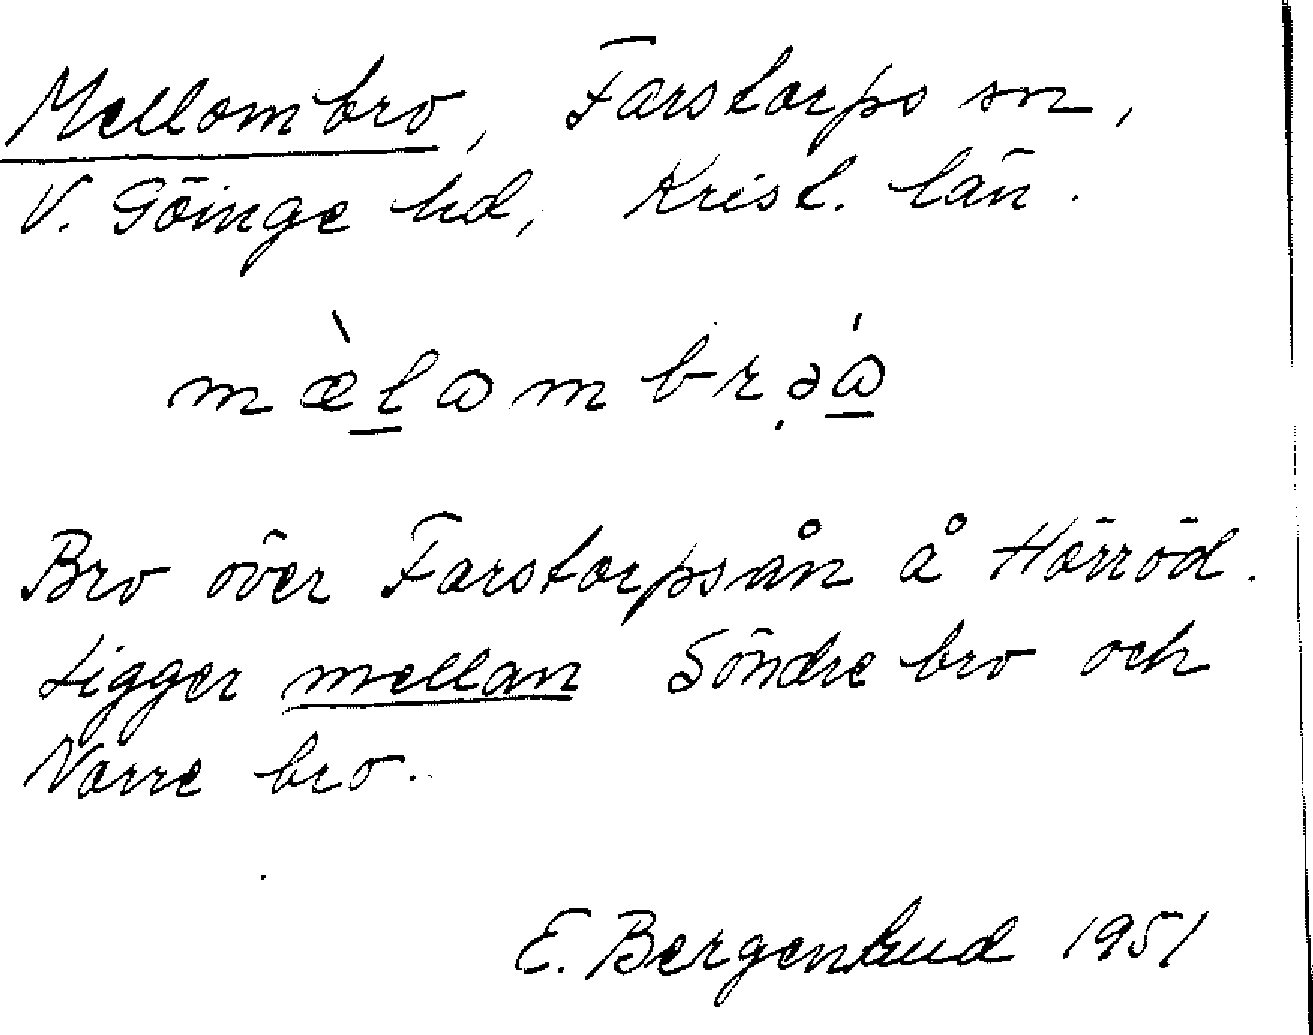 Mellombro, Farstorps sn,
V. Göinge hd, Krist. län.
mæ̀lɷmbrəɷ́
Bro över Farstorpsån å Hörröd.
Ligger mellan Söndre bro och
Norre bro.
E. Bergenlund 1951